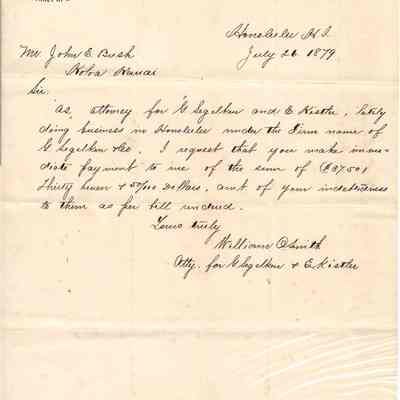 Honolulu H.I.
July 26 1879
Mr John E Bush
Koloa Kauai
Sir
As, attorney for G Segelken and E Kistler, lately
doing business in Honolulu under the Firm name of
G Segelken & Co. I request that you make imme-
diate payment to me of the sum of ($37.50)
Thirty seven & 50/100 Dollars, amt of your indebtedness
to them as per bill inclosed.
Yours truly
William O Smith
Atty. for G Segelken & E Kistler